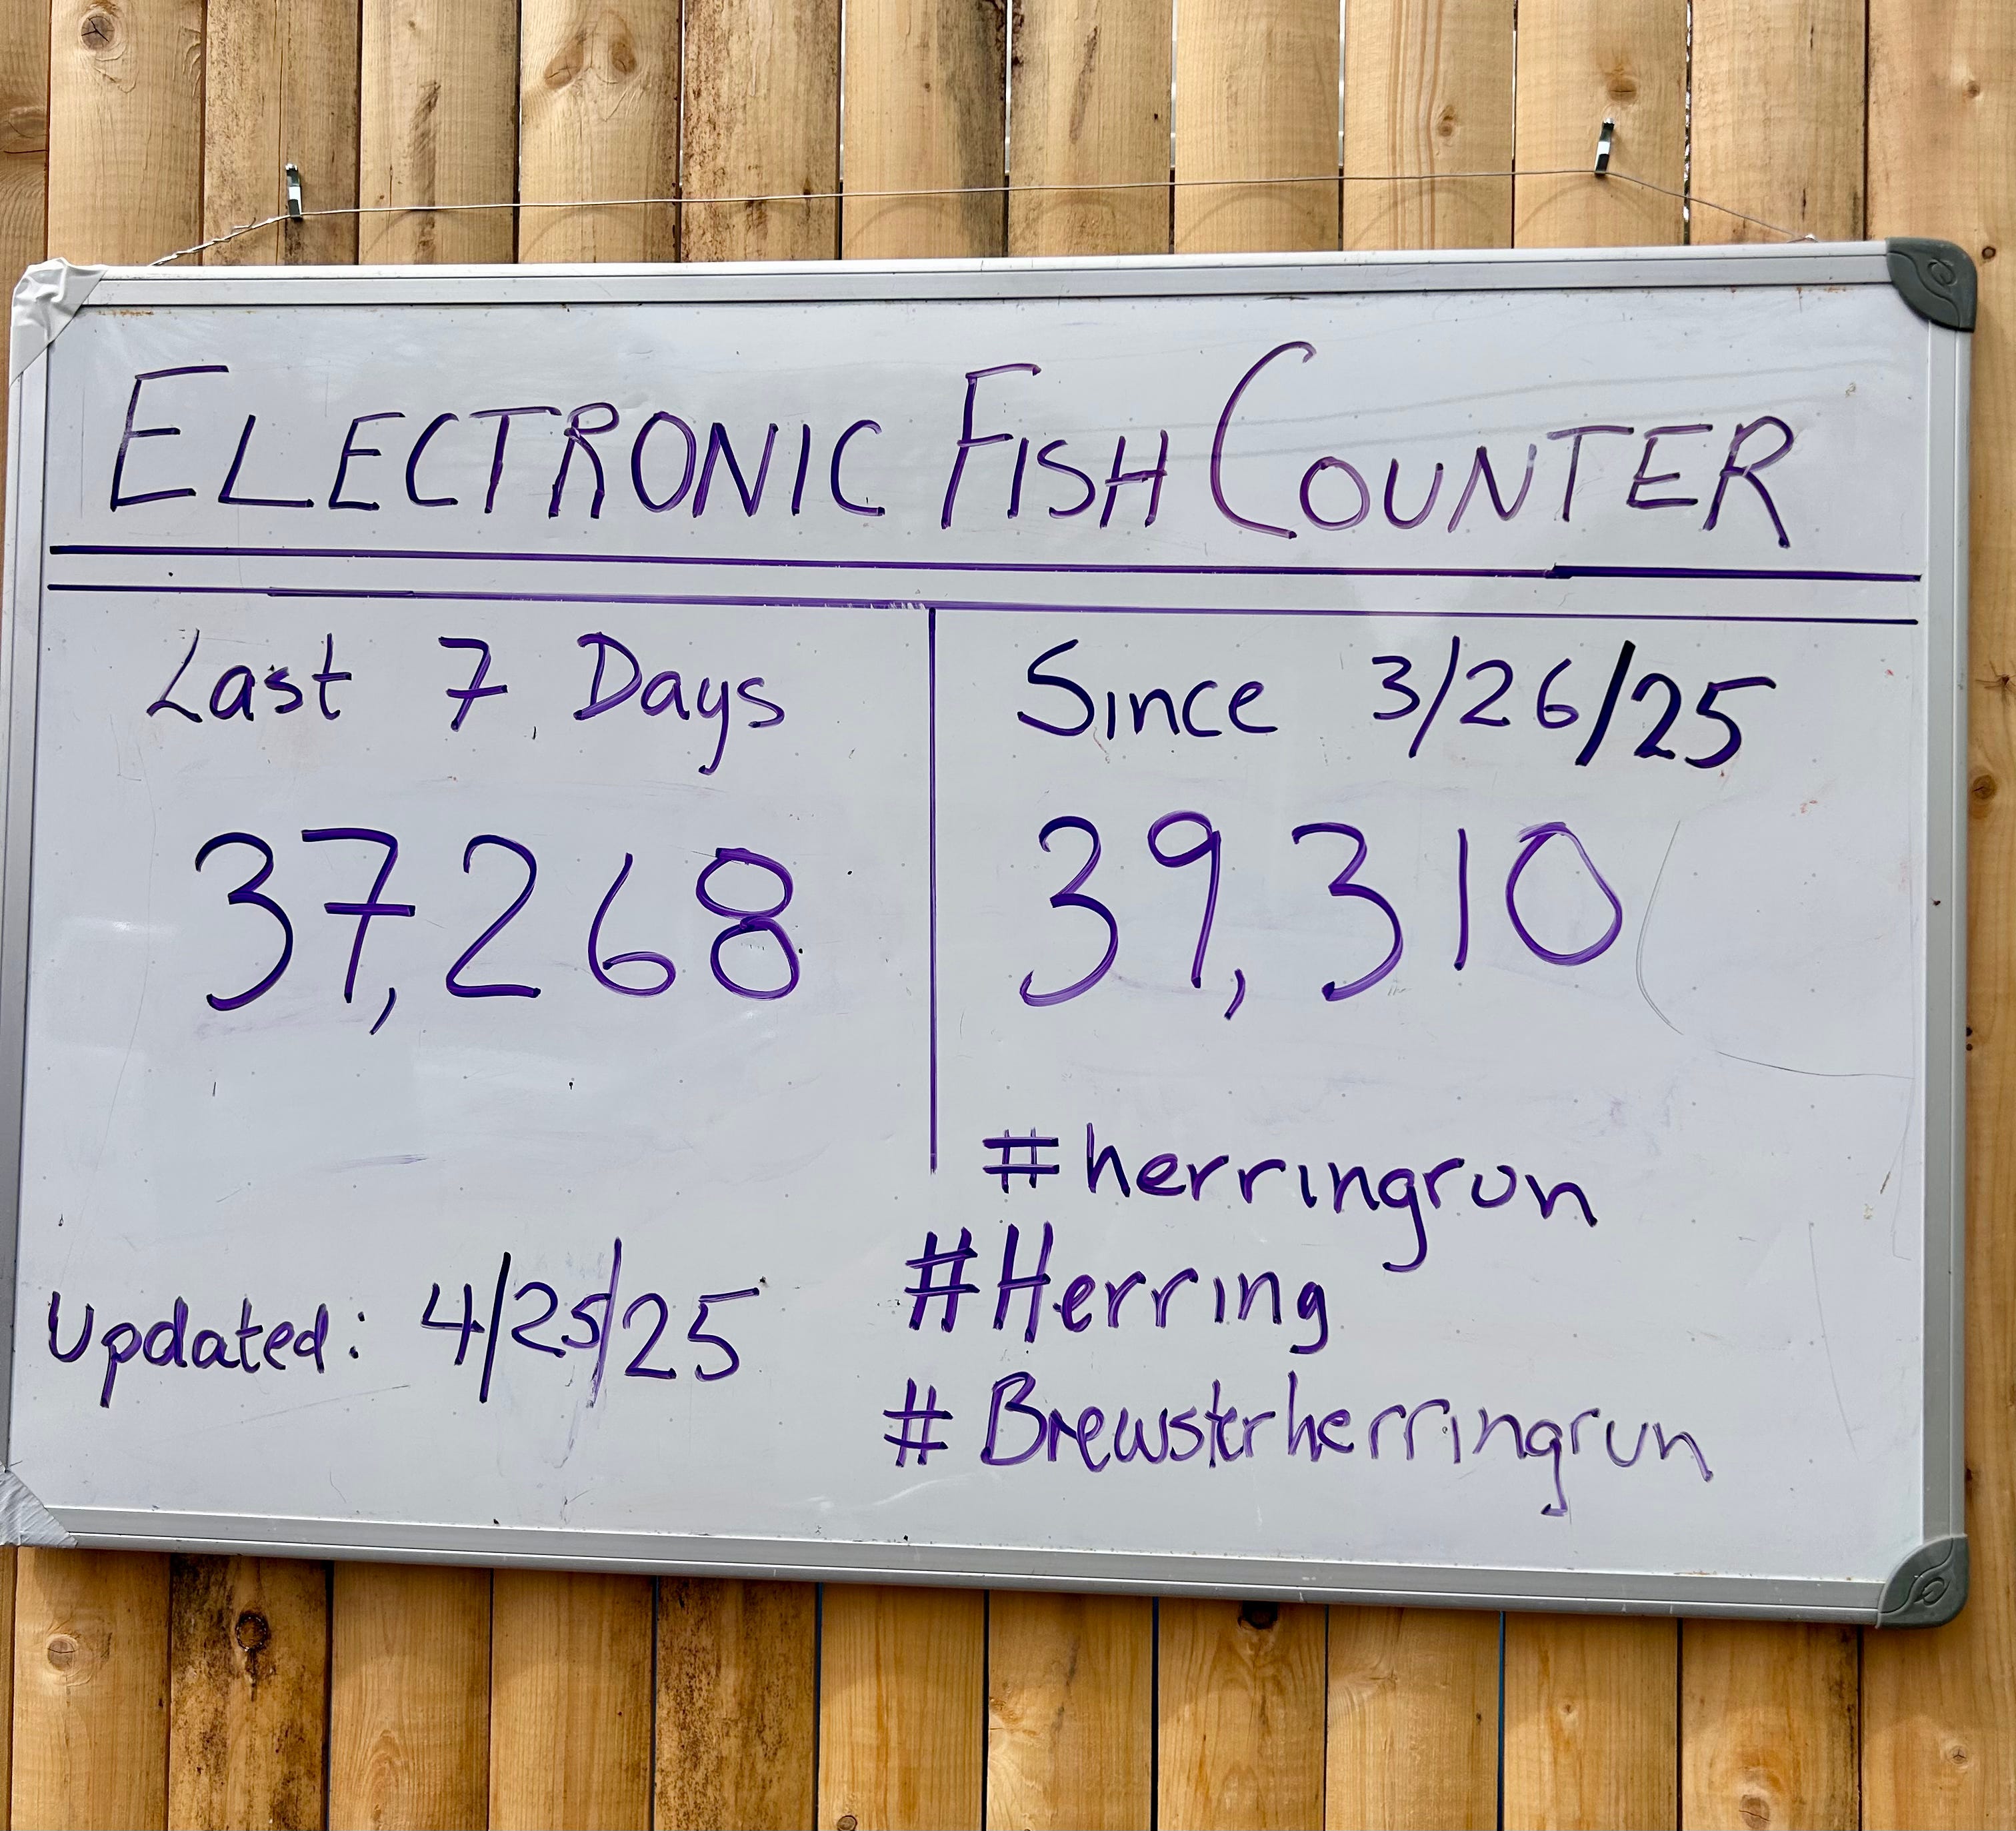 ELECTRONIC FISH COUNTER
Last 7 Days
37,268
Since 3/26/25
39,310
Updated: 4/25/25
#herringrun
#Herring
#Brewsterherringrun